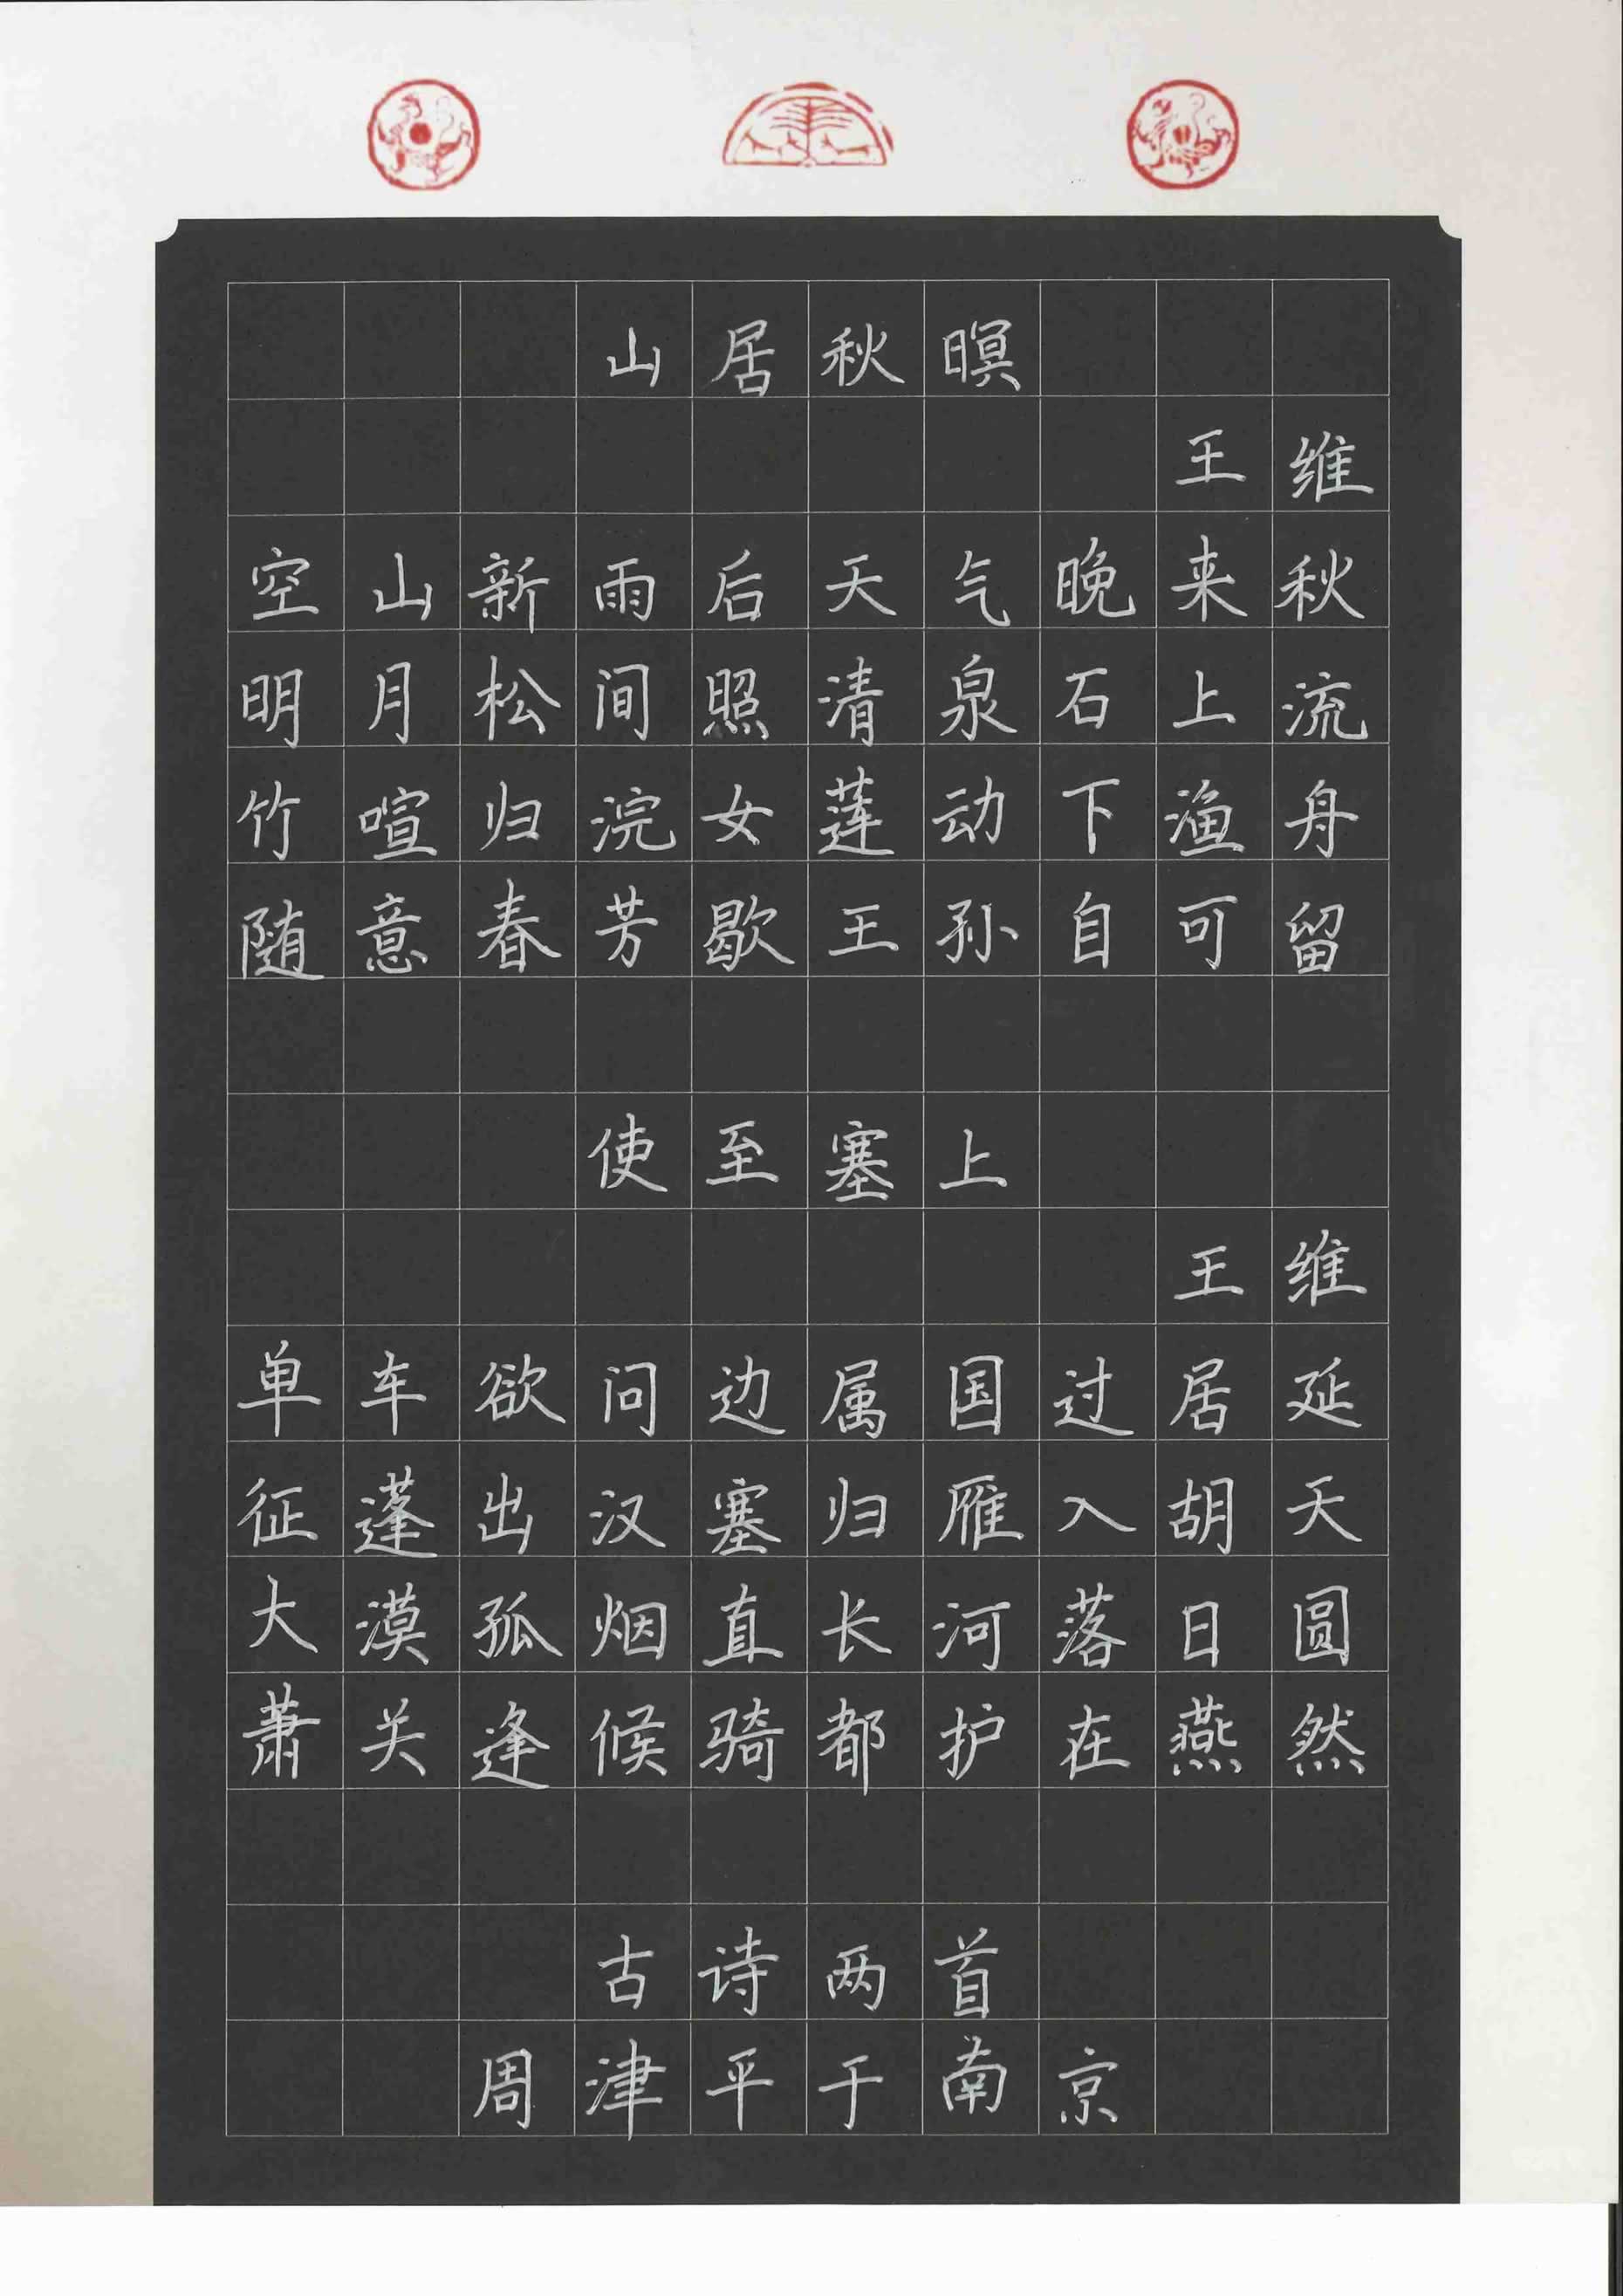 山居秋暝
王维
空山新雨后天气晚来秋
明月松间照清泉石上流
竹喧归浣女莲动下渔舟
随意春芳歇王孙自可留
使至塞上
王维
单车欲问边属国过居延
征蓬出汉塞归雁入胡天
大漠孤烟直长河落日圆
萧关逢候骑都护在燕然
古诗两首
周津平于南京